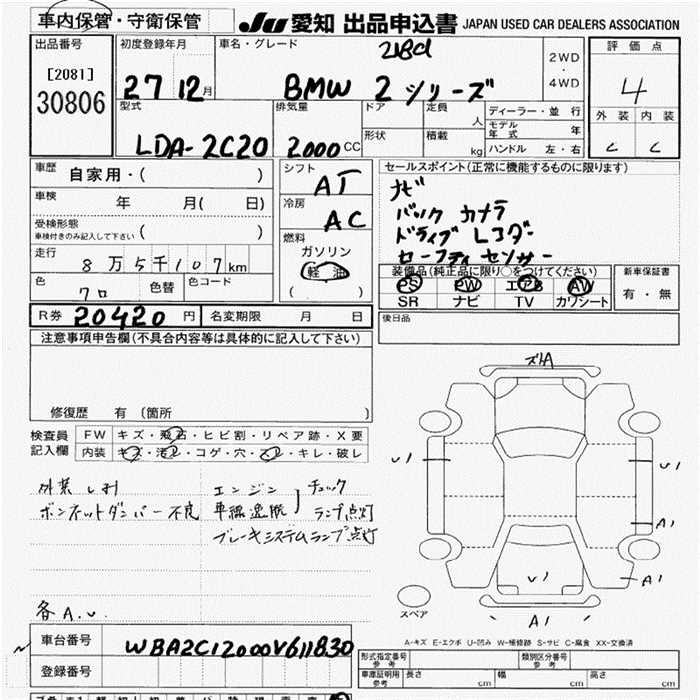 車内保管・守衛保管
JU 愛知 出品申込書 JAPAN USED CAR DEALERS ASSOCIATION
出品番号
[2081]
30806
初度登録年月
27 12月
車名・グレード
218d
BMW 2シリーズ
2WD
・
4WD
評価点
4
外装 内装
C C
型式
LDA-2C20
排気量
2000 CC
ドア
定員 人
形状
積載 kg
ディーラー・並行
モデル年式 年
ハンドル 左・右
車歴
自家用・( )
車検
年 月( 日)
受検形態
車検付きのみ記入して下さい ( )
走行
8万5千107km
色
クロ
色替
色コード
シフト
AT
冷房
AC
燃料
ガソリン
軽油
( )
セールスポイント(正常に機能するものに限ります)
ナビ
バックカメラ
ドライブレコダー
セーフティセンサー
装備品(純正品に限り○をつけてください)
PS PW エアB AW
SR ナビ TV カワシート
新車保証書
有・無
R券 20420 円
名変期限 月 日
後日品
注意事項申告欄(不具合内容等は具体的に記入して下さい)
修復歴 有 (箇所 )
検査員
記入欄
FW キズ・飛石・ヒビ割・リペア跡・X要
内装 キズ・汚レ・コゲ・穴・スレ・キレ・破レ
外装しみ
ボンネットダンパー不良
エンジン
車線逸脱
チェック
ランプ点灯
ブレーキシステムランプ点灯
各A.U.
ズレA
U1
U1
A1
U1
A1
A1
スペア
A-キズ E-エクボ U-凹み W-補修跡 S-サビ C-腐食 XX-交換済
車台番号
WBA2C12000V611830
登録番号
形式指定番号
参考
類別区分番号
参考
車庫証明用
参考
長さ cm
幅 cm
高さ cm